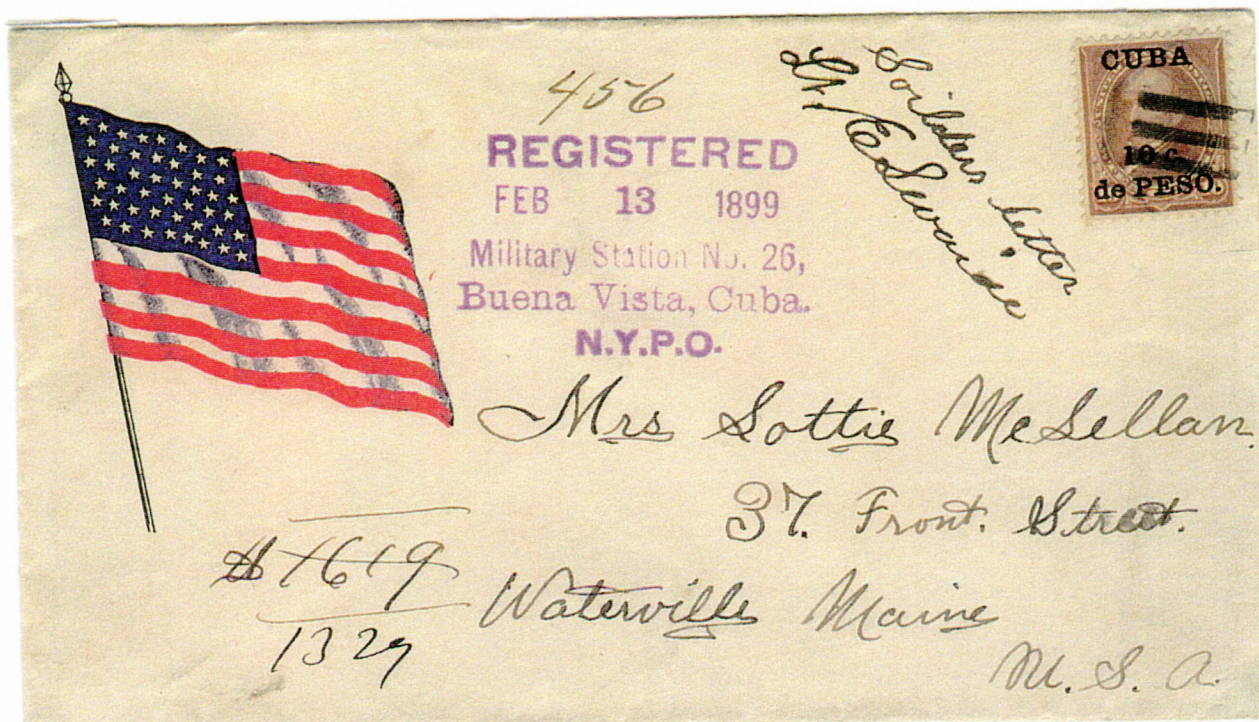 456
REGISTERED
FEB 13 1899
Military Station No. 26,
Buena Vista, Cuba.
N.Y.P.O.
Soilders letter
Lt. E
CUBA
10 c.
de PESO.
Mrs Lottie McLellan
37. Front. Street.
Waterville Maine
U. S. A.
1619
1329